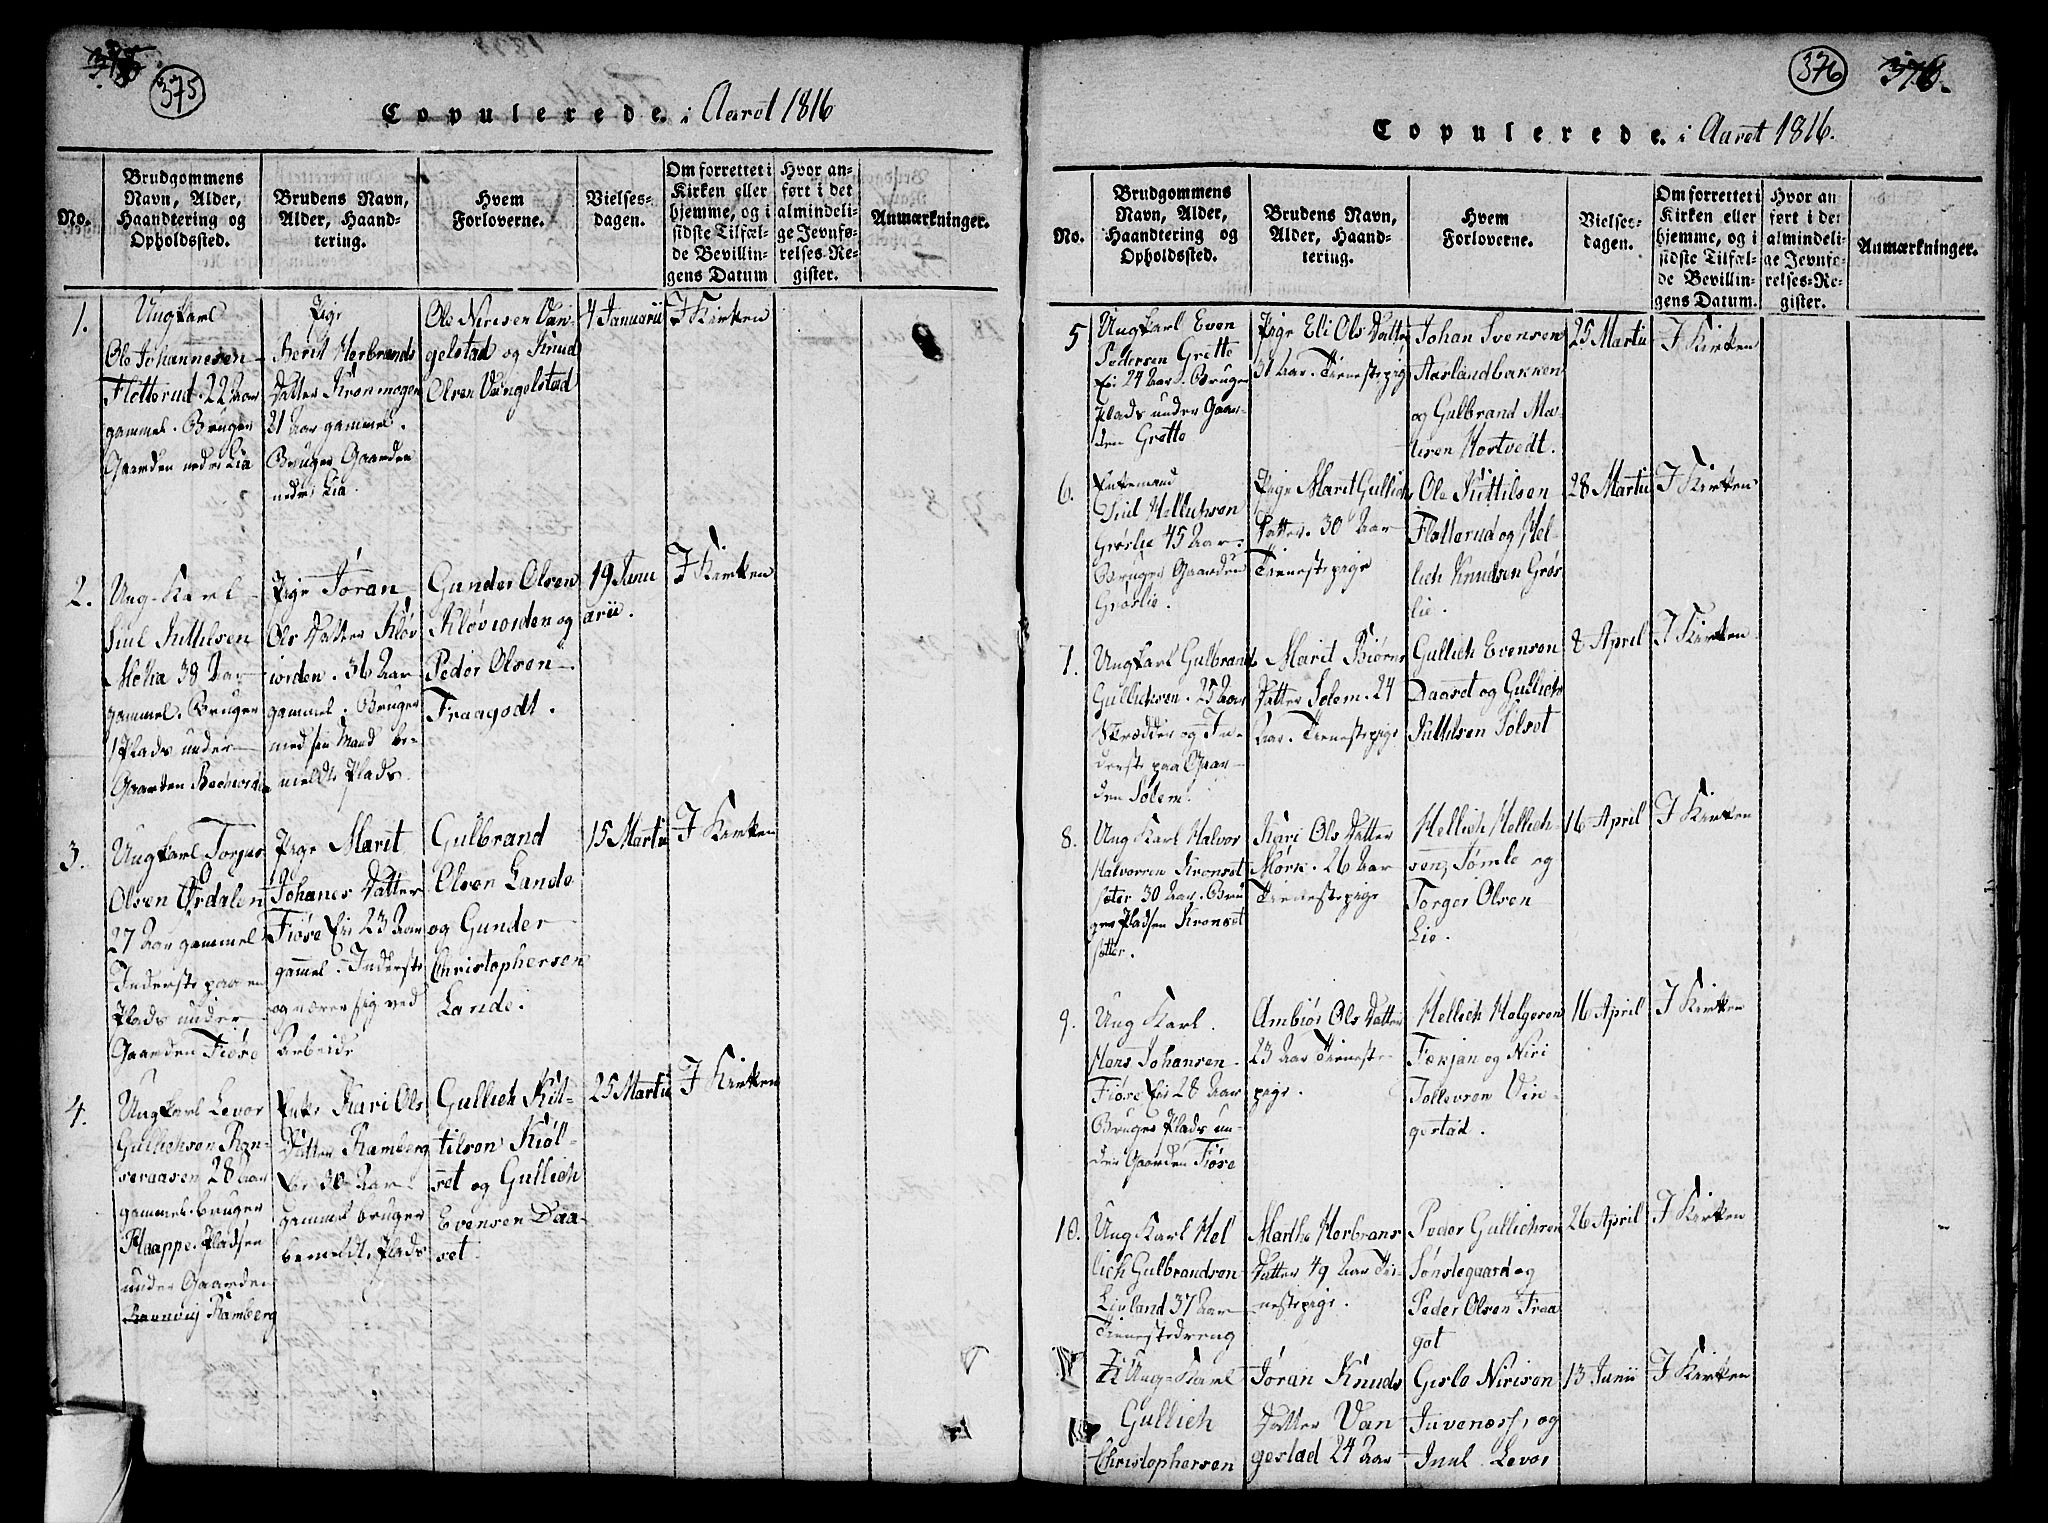 375
Copulerede. i Aaret 1816
No.
Brudgommens Navn, Alder, Haandtering og Opholdssted.
Brudens Navn, Alder, Haandtering.
Hvem Forloverne.
Vielsesdagen.
Om forrettet i Kirken eller hjemme, og i sidste Tilfælde Bevillingens Datum
Hvor anført i det almindelige Jevnførelses-Register.
Anmærkninger.
1.
Ungkarl
Ole Johannesen
Fløtterud. 22 Aar
gammel. Bruger
Gaarden nedre Lia
Pige
Berit Herbrands
Datter Kronmogen
21 Aar gammel.
Bruger Gaarden
nedre Lia.
Ole Nirisen Van-
gelstad og Knud
Olsen Vangelstad
4 Januarii
I Kirken
2.
Ung-Karl
Juul Kittilsen
38 Aar
gammel. Bruger
1 Plads under
Gaarden
Pige Jøran
Ols Datter Kløv
iorden. 36 Aar
gammel. Bruger
med sin Mand be-
meldte Plads.
Gunder Olsen
Kløviorden og
Peder Olsen
Fraagodt.
19 Janu
arii.
I Kirken
3.
Ungkarl Torjus
Olsen Ørdalen
27 Aar gammel
Inderste paa en
Plads under
Gaarden Fiøse
Pige Marit
Johanes Datter
Fiøse Ei 23 Aar
gammel. Inderste
og nærer sig ved
Arbeide
Gulbrand
Olsen Lande
og Gunder
Christophersen
Lande.
15 Martii
I Kirken
4.
Ungkarl Levor
Gullichsen Ran-
seraasen 28 Aar
gammel. bruger
Plaappe. Pladsen
under Gaarden
Ramberg
Enke Kari Ols
Datter Ramberg
Ei 30 Aar
gammel bruger
bemeldte Plads
Gullich Kit-
tilsen Kiøl-
set og Gullich
Evensen Daa-
set.
25 Martii
I Kirken
376
Copulerede. i Aaret 1816.
No.
Brudgommens Navn, Alder, Haandtering og Opholdssted.
Brudens Navn, Alder, Haandtering.
Hvem Forloverne.
Vielsesdagen.
Om forrettet i Kirken eller hjemme, og i sidste Tilfælde Bevillingens Datum.
Hvor anført i det almindelige Jevnførelses-Register.
Anmærkninger.
5
Ungkarl Even
Pedersen Grette
Ei 24 Aar. Bruger
Plads under Gaar-
den Grette
Pige Eli Ols Datter
31 Aar. Tienestepige
Johan Svensen
Aaslandbakken
og Gulbrand Ma-
Hortvedt.
25 Martii
I Kirken
6.
Enkemand
Juul Hellichsen
Grøslie 45 Aar.
Bruger Gaarden
Grøslie.
Pige Marit Gullichs
Datter. 30 Aar
Tienestepige
Ole Kittilsen
Fløtterud og Hel-
lich Knudsen Grøs-
lie.
28 Martii
I Kirken
7.
Ungkarl Gulbrand
Gullichsen. 25 Aar
Skrædder og In-
derste paa Gaar-
den Solem.
Marit Biørns
Datter Solem. 24
Aar. Tienestepige
Gullich Evensen
Daaset og Gullich
Kittilsen
8 April
I Kirken
8.
Ung Karl Halvor
Halvorsen Kronset
sæter 30 Aar. Bru
ger Pladsen Kronset
sætter.
Kari Ols Datter
Mørk. 26 Aar
Tienestepige
Hellich Hellich-
sen, Tømle og
Torger Olsen
Lie.
16 April
I Kirken
9.
Ung Karl.
Hans Johansen
Fiøse Ei 28 Aar
Bruger Plads un-
der Gaarden Fiøse
Ambiør Ols Datter
23 Aar Tieneste-
pige.
Hellich Holgersen
Færjan og Niri
Tollevsen Vin-
gestad.
16 April
I Kirken
10.
Ung Karl Hel
lich Gulbrandsen
Liuland 37 Aar
Tienestedreng
Marthe Herbrans
Datter 49 Aar Tie-
nestepige.
Peder Gullichsen
Sønstegaard og
Peder Olsen Fraa
got
26 April
I Kirken
11
Ung-Karl
Gullich
Christophersen
Jøran Knuds
Datter Van
gestad 24 Aar
Gislo Nirisen
Juvenæss, og
Juul Levor
13 Junii
I Kirken